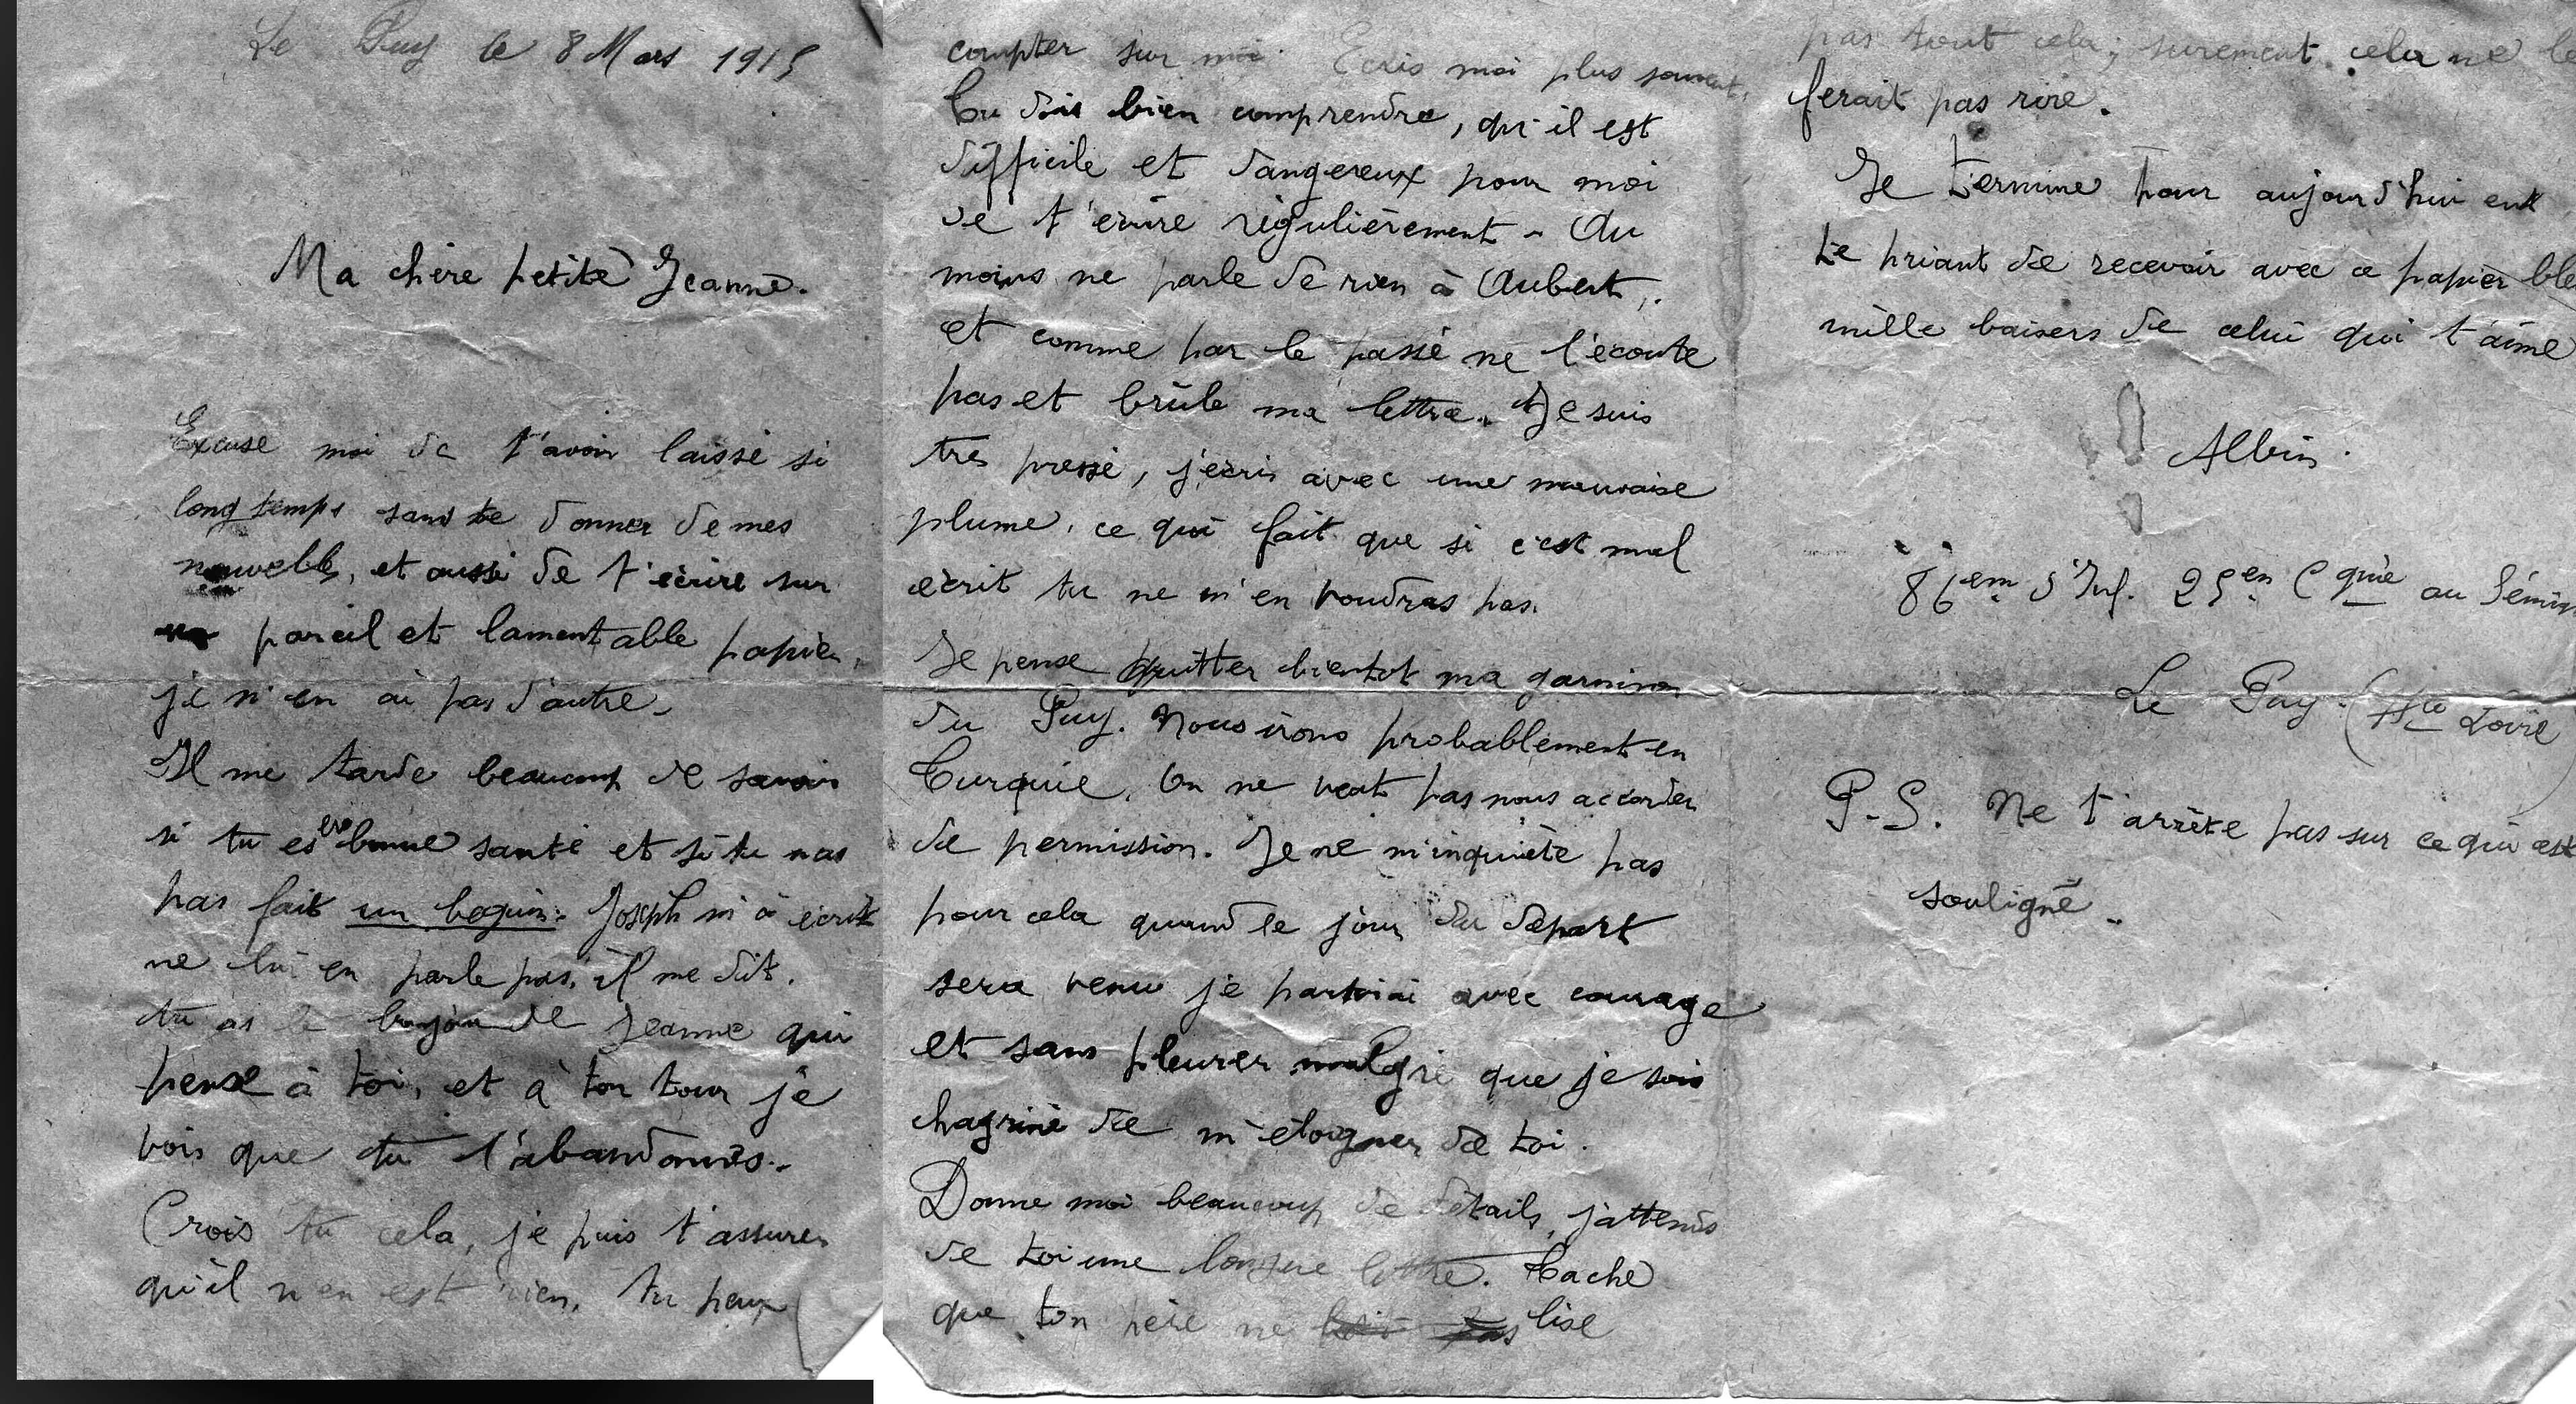 Le Puy le 8 Mars 1915
Ma chère petite Jeanne.
Excuse moi de t'avoir laissé si
longtemps sans te donner de mes
nouvelles, et aussi de t'écrire sur
pareil et lamentable papier,
je n'en ai pas d'autre.
Il me tarde beaucoup de savoir
si tu es en bonne santé et si tu n'as
pas fait un béguin. Joseph m'a écrit
ne lui en parle pas, il me dit.
tu as le bonjour de Jeanne qui
pense à toi, et à ton tour je
vois que tu l'abandonnes..
Crois tu cela, je puis t'assurer
qu'il n'en est rien. Tu peux
compter sur moi Ecris moi plus souvent.
Tu dois bien comprendre, qu'il est
difficile et dangereux pour moi
de t'écrire régulièrement - Au
moins ne parle de rien à Aubert,
et comme par le passé ne l'écoute
pas et brûle ma lettre. Je suis
très pressé, j'écris avec une mauvaise
plume, ce qui fait que si c'est mal
écrit tu ne m'en voudras pas.
Je pense quitter bientot ma garnison
du Puy. Nous irons probablement en
Turquie. On ne veut pas nous accorder
de permission. Je ne m'inquiète pas
pour cela quand le jour du départ
sera venu je partirai avec courage
et sans pleurer malgré que je sois
chagriné de m'éloigner de toi.
Donne moi beaucoup de détails, j'attends
de toi une longue lettre. Tache
que ton père ne lise
pas tout cela; surement cela ne le
ferait pas rire.
Je termine pour aujourd'hui en
te priant de recevoir avec ce papier
mille baisers de celui qui t'aime
Albin.
86em d'Inf. 25em Cquie au
Le Puy (Hte Loire)
P.S. Ne t'arrête pas sur ce qui est
souligné.